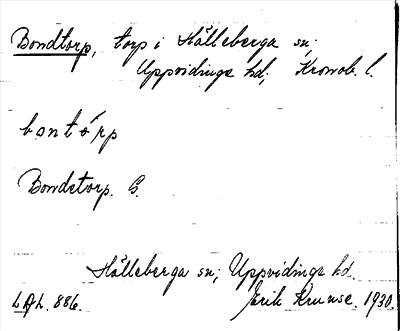 Bondtorp, torp i Hälleberga sn;
Uppvidinge hd, Kronob. l.
bontórp
Bondetorp. G.
Hälleberga sn; Uppvidinge hd.
L.A.L. 886. Erik Krumse. 1930.